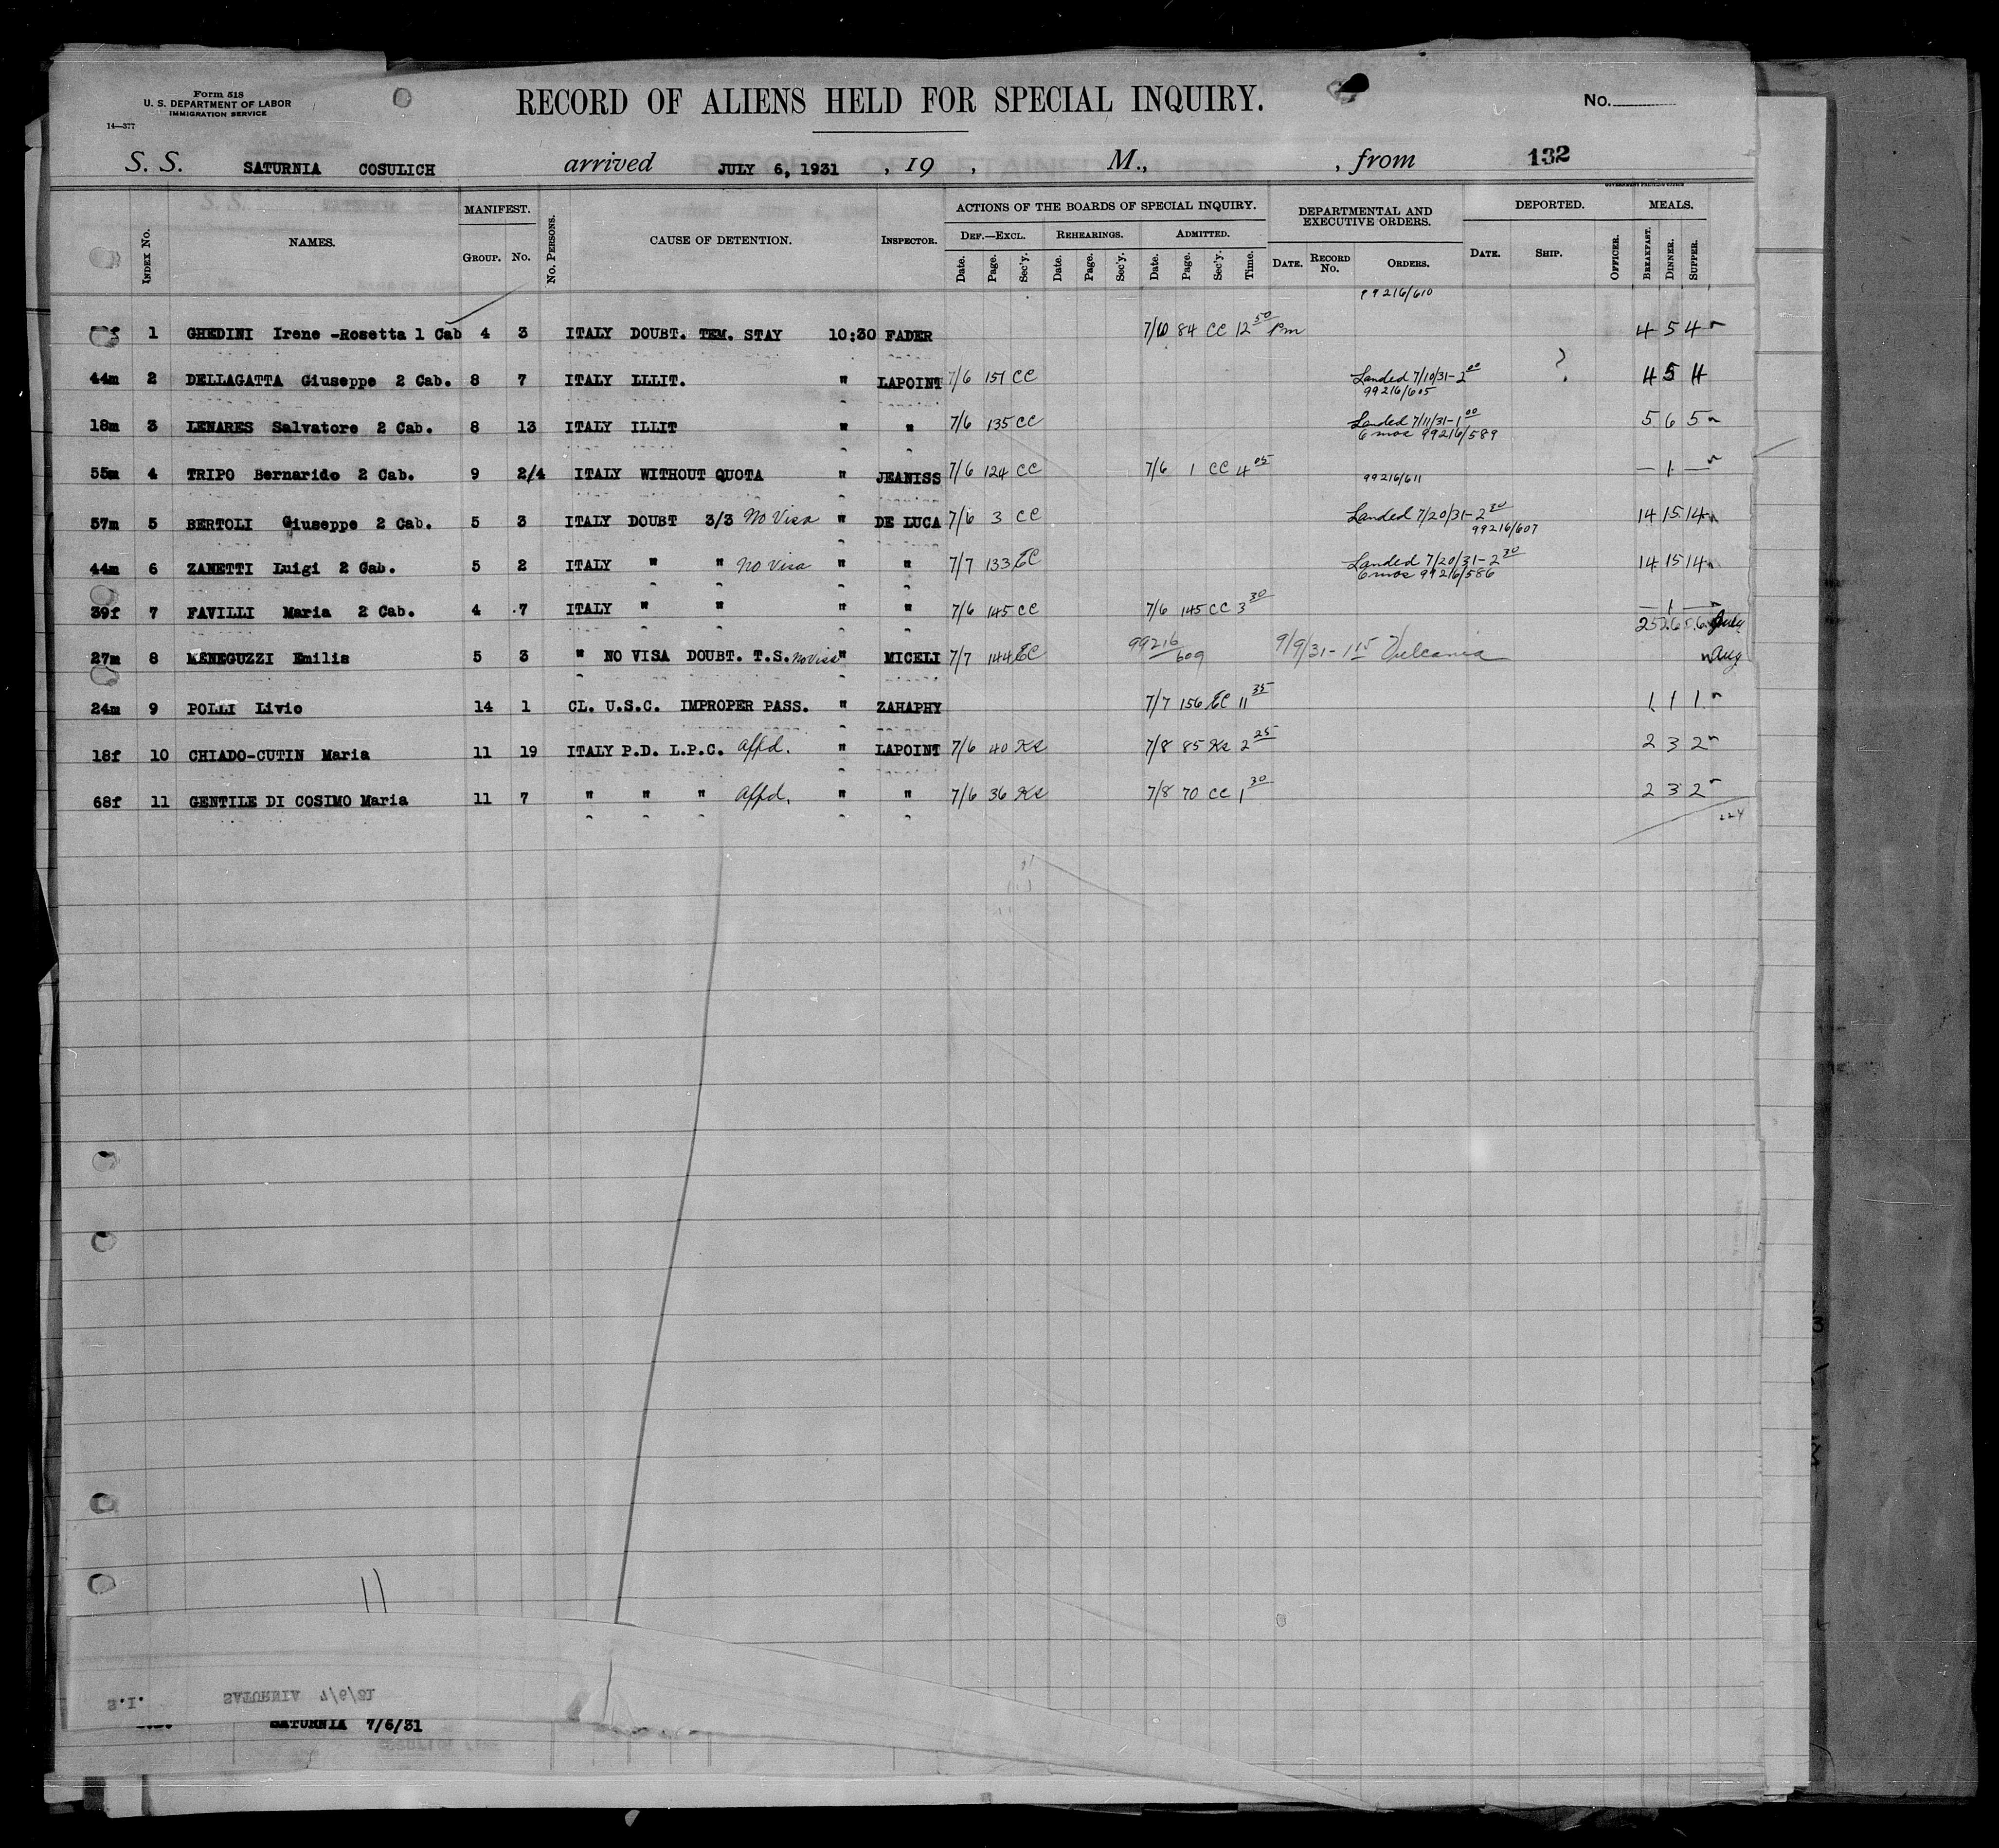 Form 518
U. S. DEPARTMENT OF LABOR
IMMIGRATION SERVICE
14—377
RECORD OF ALIENS HELD FOR SPECIAL INQUIRY.
No.
S. S. SATURNIA COSULICH arrived JULY 6, 1931 , 19 , M., , from 132
GOVERNMENT PRINTING OFFICE
INDEX No. NAMES. MANIFEST. GROUP. No. No. PERSONS. CAUSE OF DETENTION. INSPECTOR. ACTIONS OF THE BOARDS OF SPECIAL INQUIRY. DEF.—EXCL. Date. Page. Sec'y. REHEARINGS. Date. Page. Sec'y. ADMITTED. Date. Page. Sec'y. Time. DEPARTMENTAL AND EXECUTIVE ORDERS. DATE. RECORD No. ORDERS. DEPORTED. DATE. SHIP. OFFICER. MEALS. BREAKFAST. DINNER. SUPPER.
99216/610
1 GHEDINI Irene -Rosetta 1 Cab 4 3 ITALY DOUBT. TEM. STAY 10:30 FADER 84 CC 12 50 Pm 4 5 4
44m 2 DELLAGATTA Giuseppe 2 Cab. 8 7 ITALY LLLIT. " LAPOINT 7/6 151 CC Landed 7/10/31-2 00 ? 4 5 4
99216/605
18m 3 LENARES Salvatore 2 Cab. 8 13 ITALY ILLIT " " 7/6 135 CC Landed 7/11/31-1 00 5 6 5
6 mos 99216/589
55m 4 TRIPO Bernarido 2 Cab. 9 2/4 ITALY WITHOUT QUOTA " JEANISS 7/6 124 CC 7/6 1 CC 4 05 — 1 —
99216/611
57m 5 BERTOLI Giuseppe 2 Cab. 5 3 ITALY DOUBT 3/3 No Visa " DE LUCA 7/6 3 CC Landed 7/20/31-2 30 14 15 14
99216/607
44m 6 ZANETTI Luigi 2 Cab. 5 2 ITALY " " No Visa " " 7/7 133 EC Landed 7/20/31-2 30 14 15 14
6 mos 99216/586
39f 7 FAVILLI Maria 2 Cab. 4 7 ITALY " " " " 7/6 145 CC 7/6 145 CC 3 30 — 1 —
25 26 July
27m 8 MENEGUZZI Emilis 5 3 " NO VISA DOUBT. T.S. No Visa " MICELI 7/7 144 EC 99216/609 9/9/31-1 15 Vulcania Aug
24m 9 POLLI Livio 14 1 CL. U.S.C. IMPROPER PASS. " ZAHAPHY 7/7 156 EC 11 35 1 1 1
18f 10 CHIADO-CUTIN Maria 11 19 ITALY P.D. L.P.C. Affd. " LAPOINT 7/6 40 Ks 7/8 85 Ks 2 25 2 3 2
68f 11 GENTILE DI COSIMO Maria 11 7 " " " Affd. " " 7/6 36 Ks 7/8 70 CC 1 30 2 3 2
11
S.I. SATURNIA 7/6/31
SATURNIA 7/6/31